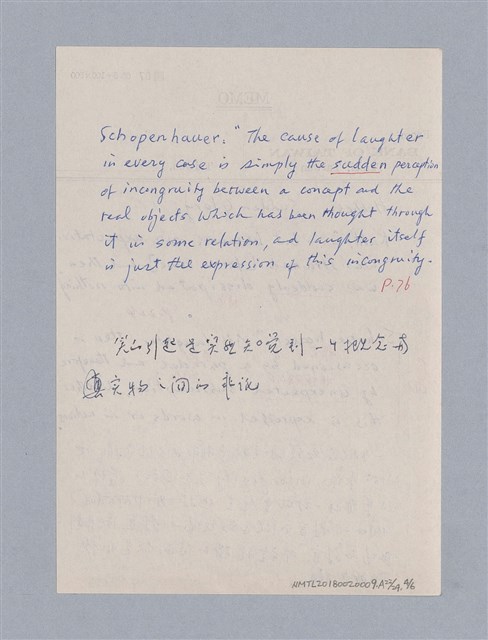 Schopenhauer: "The cause of laughter
in every case is simply the sudden perception
of incongruity between a concept and the
real objects which has been thought through
it in some relation, and laughter itself
is just the expression of this incongruity.
P.76
笑的引起是突然知覺到一个概念与
真实物之間的
NMTL20180020009
MEMO